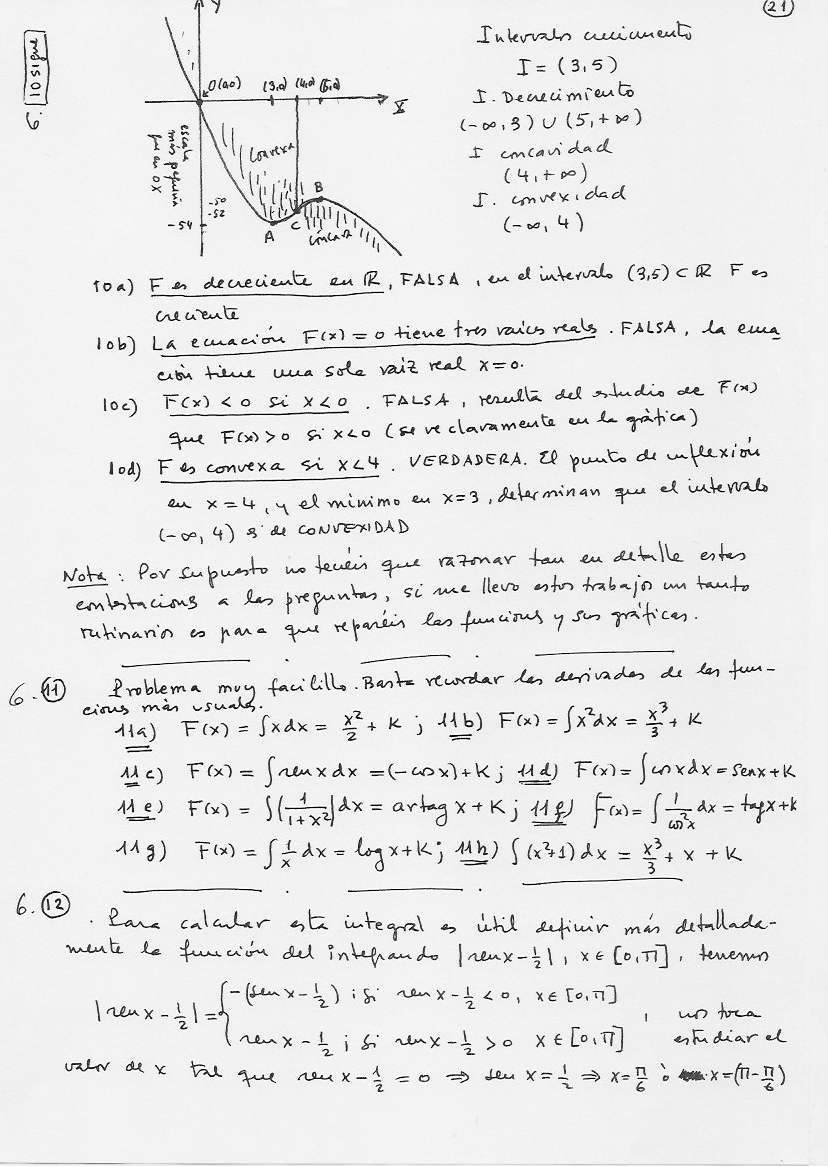 (21)
6. 10 sigue
Y
O(0,0) (3,0) (4,0) (5,0)
X
escala
más pequeña
que en OX
Convexa
-50
-52
-54
A C B
cóncava
Intervalos crecimiento
I = (3,5)
I. Decrecimiento
(-∞,3) ∪ (5,+∞)
I concavidad
(4,+∞)
I. convexidad
(-∞, 4)
10a) F es decreciente en ℝ, FALSA, en el intervalo (3,5) ⊂ ℝ F es
creciente
10b) La ecuación F(x) = 0 tiene tres raíces reales. FALSA, la ecua
ción tiene una sola raíz real x=0.
10c) F(x) < 0 si x<0. FALSA, resulta del estudio de F(x)
que F(x)>0 si x<0 (se ve claramente en la gráfica)
10d) F es convexa si x<4. VERDADERA. El punto de inflexión
en x=4, y el mínimo en x=3, determinan que el intervalo
(-∞, 4) es de CONVEXIDAD
Nota: Por supuesto no tenéis que razonar tan en detalle estas
contestaciones a las preguntas, si me llevo estos trabajos un tanto
rutinarios es para que reparéis las funciones y sus gráficas.
6. 11 Problema muy facilillo. Basta recordar las derivadas de las fun-
ciones más usuales.
11a) F(x) = ∫xdx = x²/2 + K ; 11b) F(x) = ∫x²dx = x³/3 + K
11c) F(x) = ∫senxdx = (-cosx)+K ; 11d) F(x) = ∫cosxdx = senx+K
11e) F(x) = ∫(1/(1+x²))dx = artagx+K ; 11f) F(x) = ∫1/cos²x dx = tagx+K
11g) F(x) = ∫1/x dx = logx+K ; 11h) ∫(x²+1)dx = x³/3 + x + K
6. 12 . Para calcular esta integral es útil definir más detallada-
mente la función del integrando |senx-1/2|, x∈[0,π], tenemos
|senx-1/2| = { -(senx-1/2) ; si senx-1/2 < 0, x∈[0,π]
senx-1/2 ; si senx-1/2 > 0 x∈[0,π] , nos toca
estudiar el
valor de x tal que senx-1/2 = 0 ⇒ senx=1/2 ⇒ x=π/6 ó x=(π-π/6)